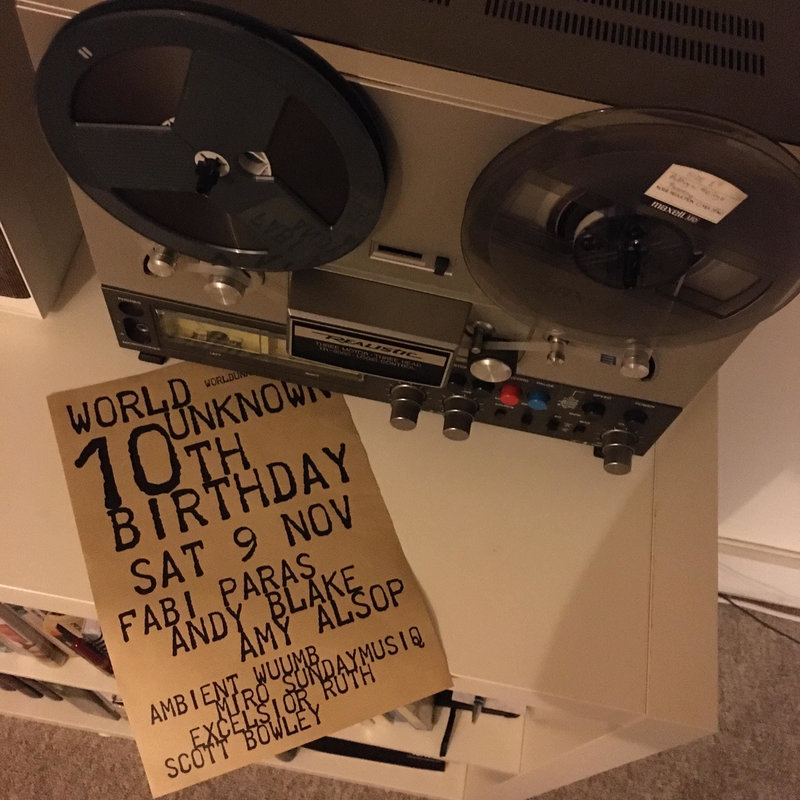 maxell UD
REALISTIC
THREE MOTOR · THREE HEAD
WORLD UNKNOWN
10TH
BIRTHDAY
SAT 9 NOV
FABI PARAS
ANDY BLAKE
AMY ALSOP
AMBIENT WUUMB
MIRO SUNDAYMUSIQ
EXCELSIOR RUTH
SCOTT BOWLEY